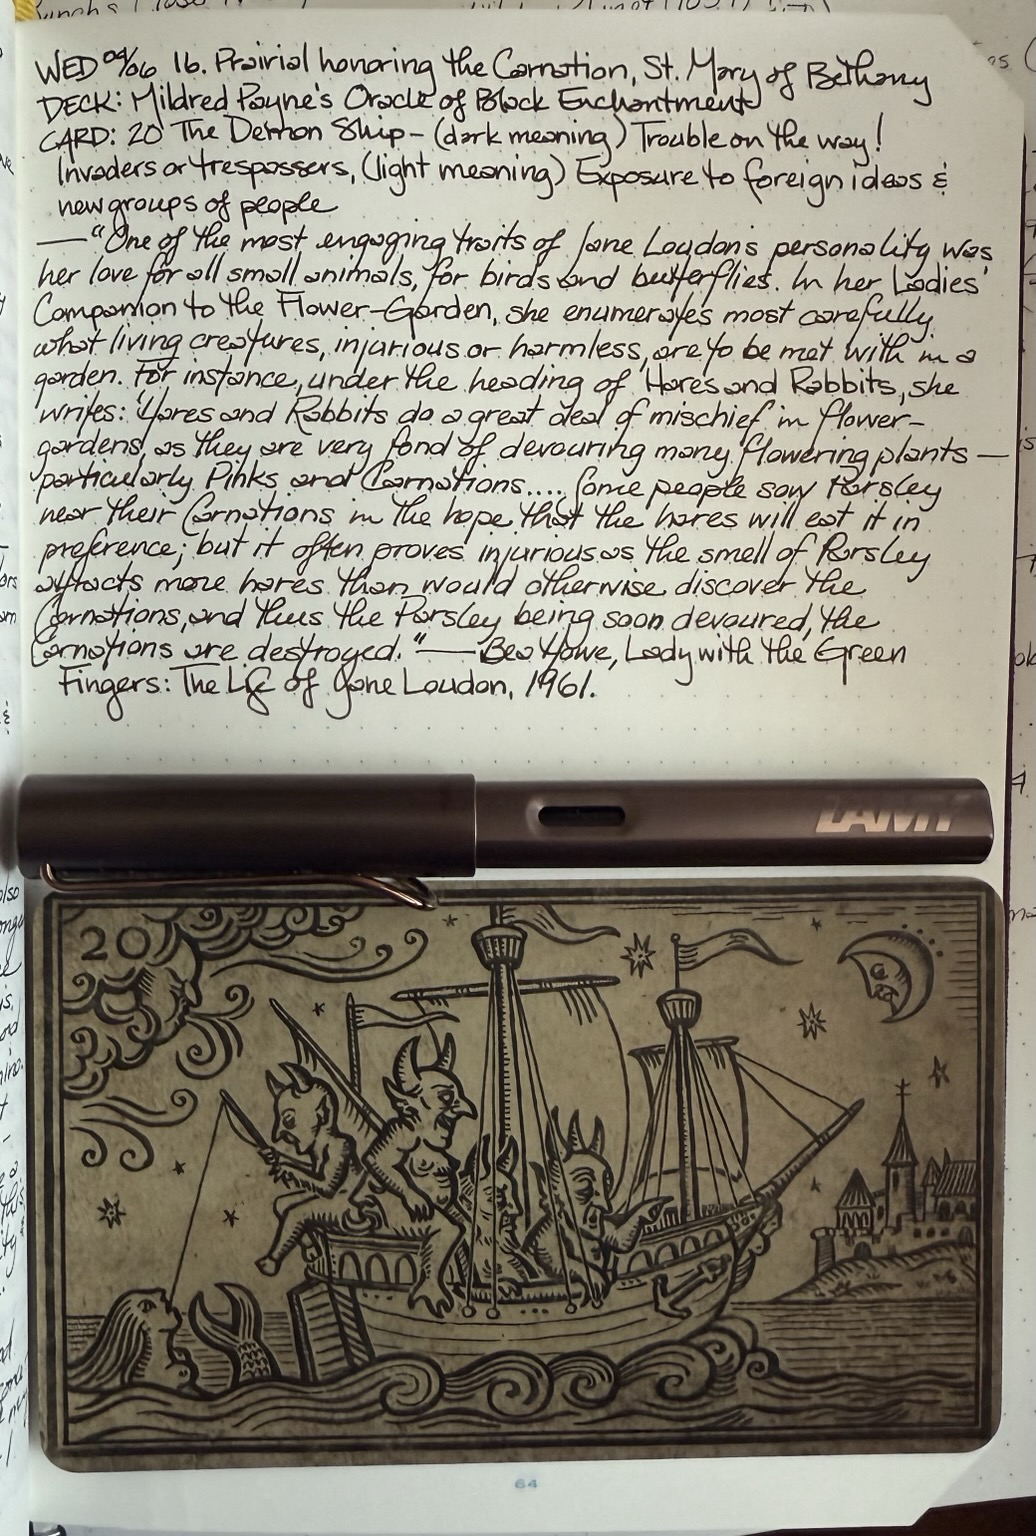 WED 04/06 16. Prairial honoring the Carnation, St. Mary of Bethany
DECK: Mildred Payne's Oracle of Black Enchantment
CARD: 20 The Demon Ship – (dark meaning) Trouble on the way!
Invaders or trespassers, (light meaning) Exposure to foreign ideas &
new groups of people
—"One of the most engaging traits of Jane Loudon's personality was
her love for all small animals, for birds and butterflies. In her Ladies'
Companion to the Flower-Garden, she enumerates most carefully
what living creatures, injurious or harmless, are to be met with in a
garden. For instance, under the heading of Hares and Rabbits, she
writes: 'Hares and Rabbits do a great deal of mischief in flower-
gardens, as they are very fond of devouring many flowering plants —
particularly Pinks and Carnations.... Some people sow Parsley
near their Carnations in the hope that the hares will eat it in
preference; but it often proves injurious as the smell of Parsley
attracts more hares than would otherwise discover the
Carnations, and thus the Parsley being soon devoured, the
Carnations are destroyed." — Bea Howe, Lady with the Green
Fingers: The Life of Jane Loudon, 1961.
LAMY
20
64